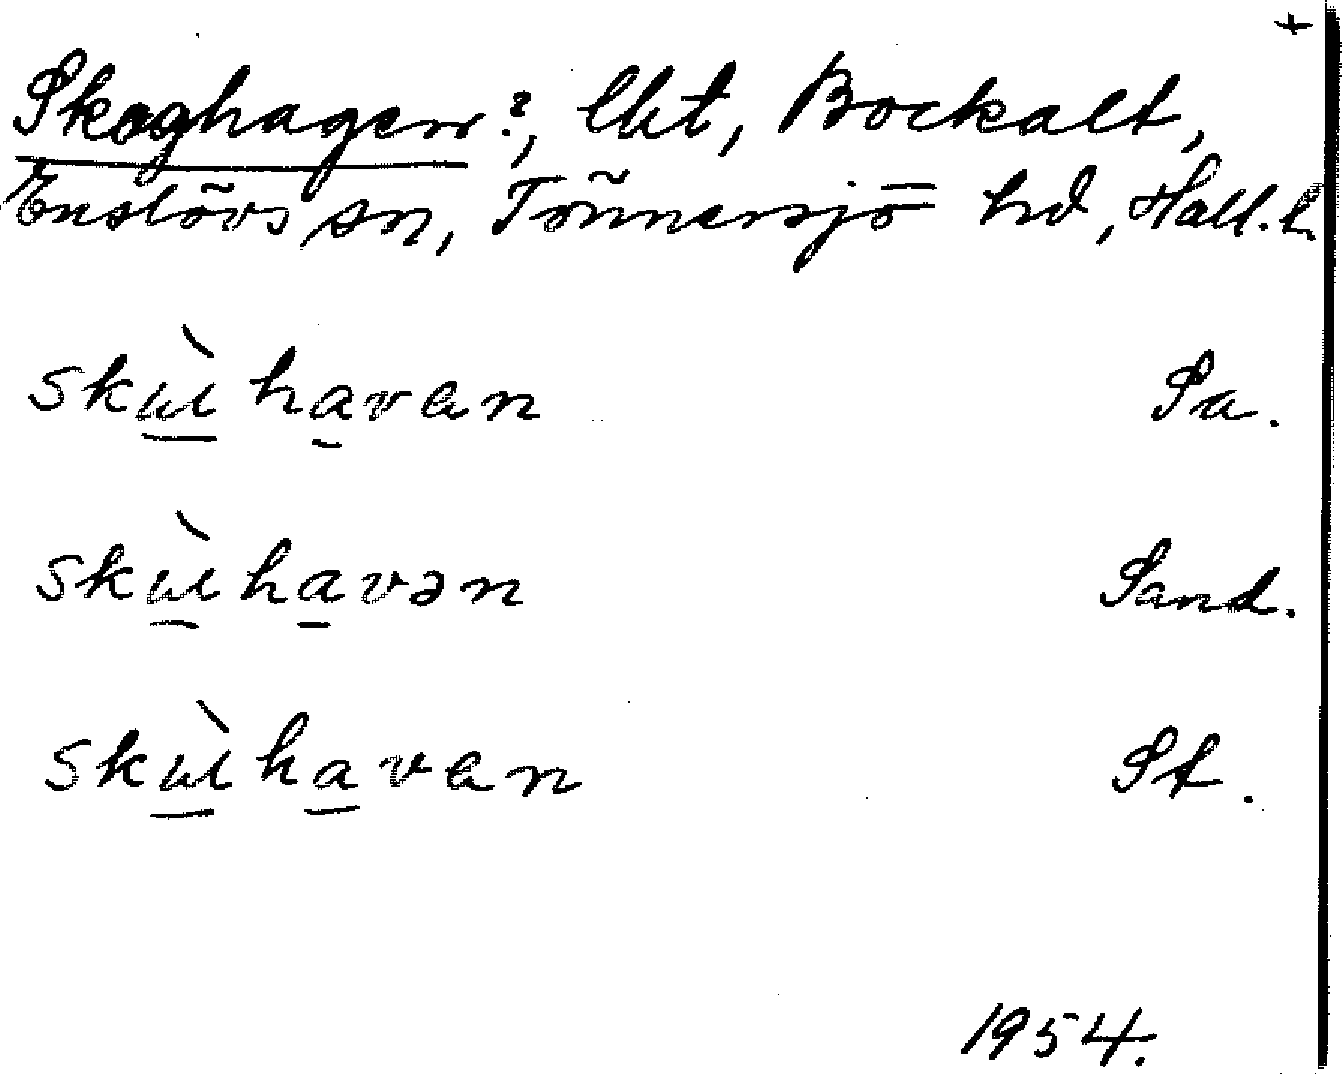 +
Skoghagen?, lht, Bockalt,
Enslövs sn, Tönnersjö hd, Hall. l.
skɯ̀havan Sa.
skɯ̀havən Sand.
skɯ̀havan St.
1954.